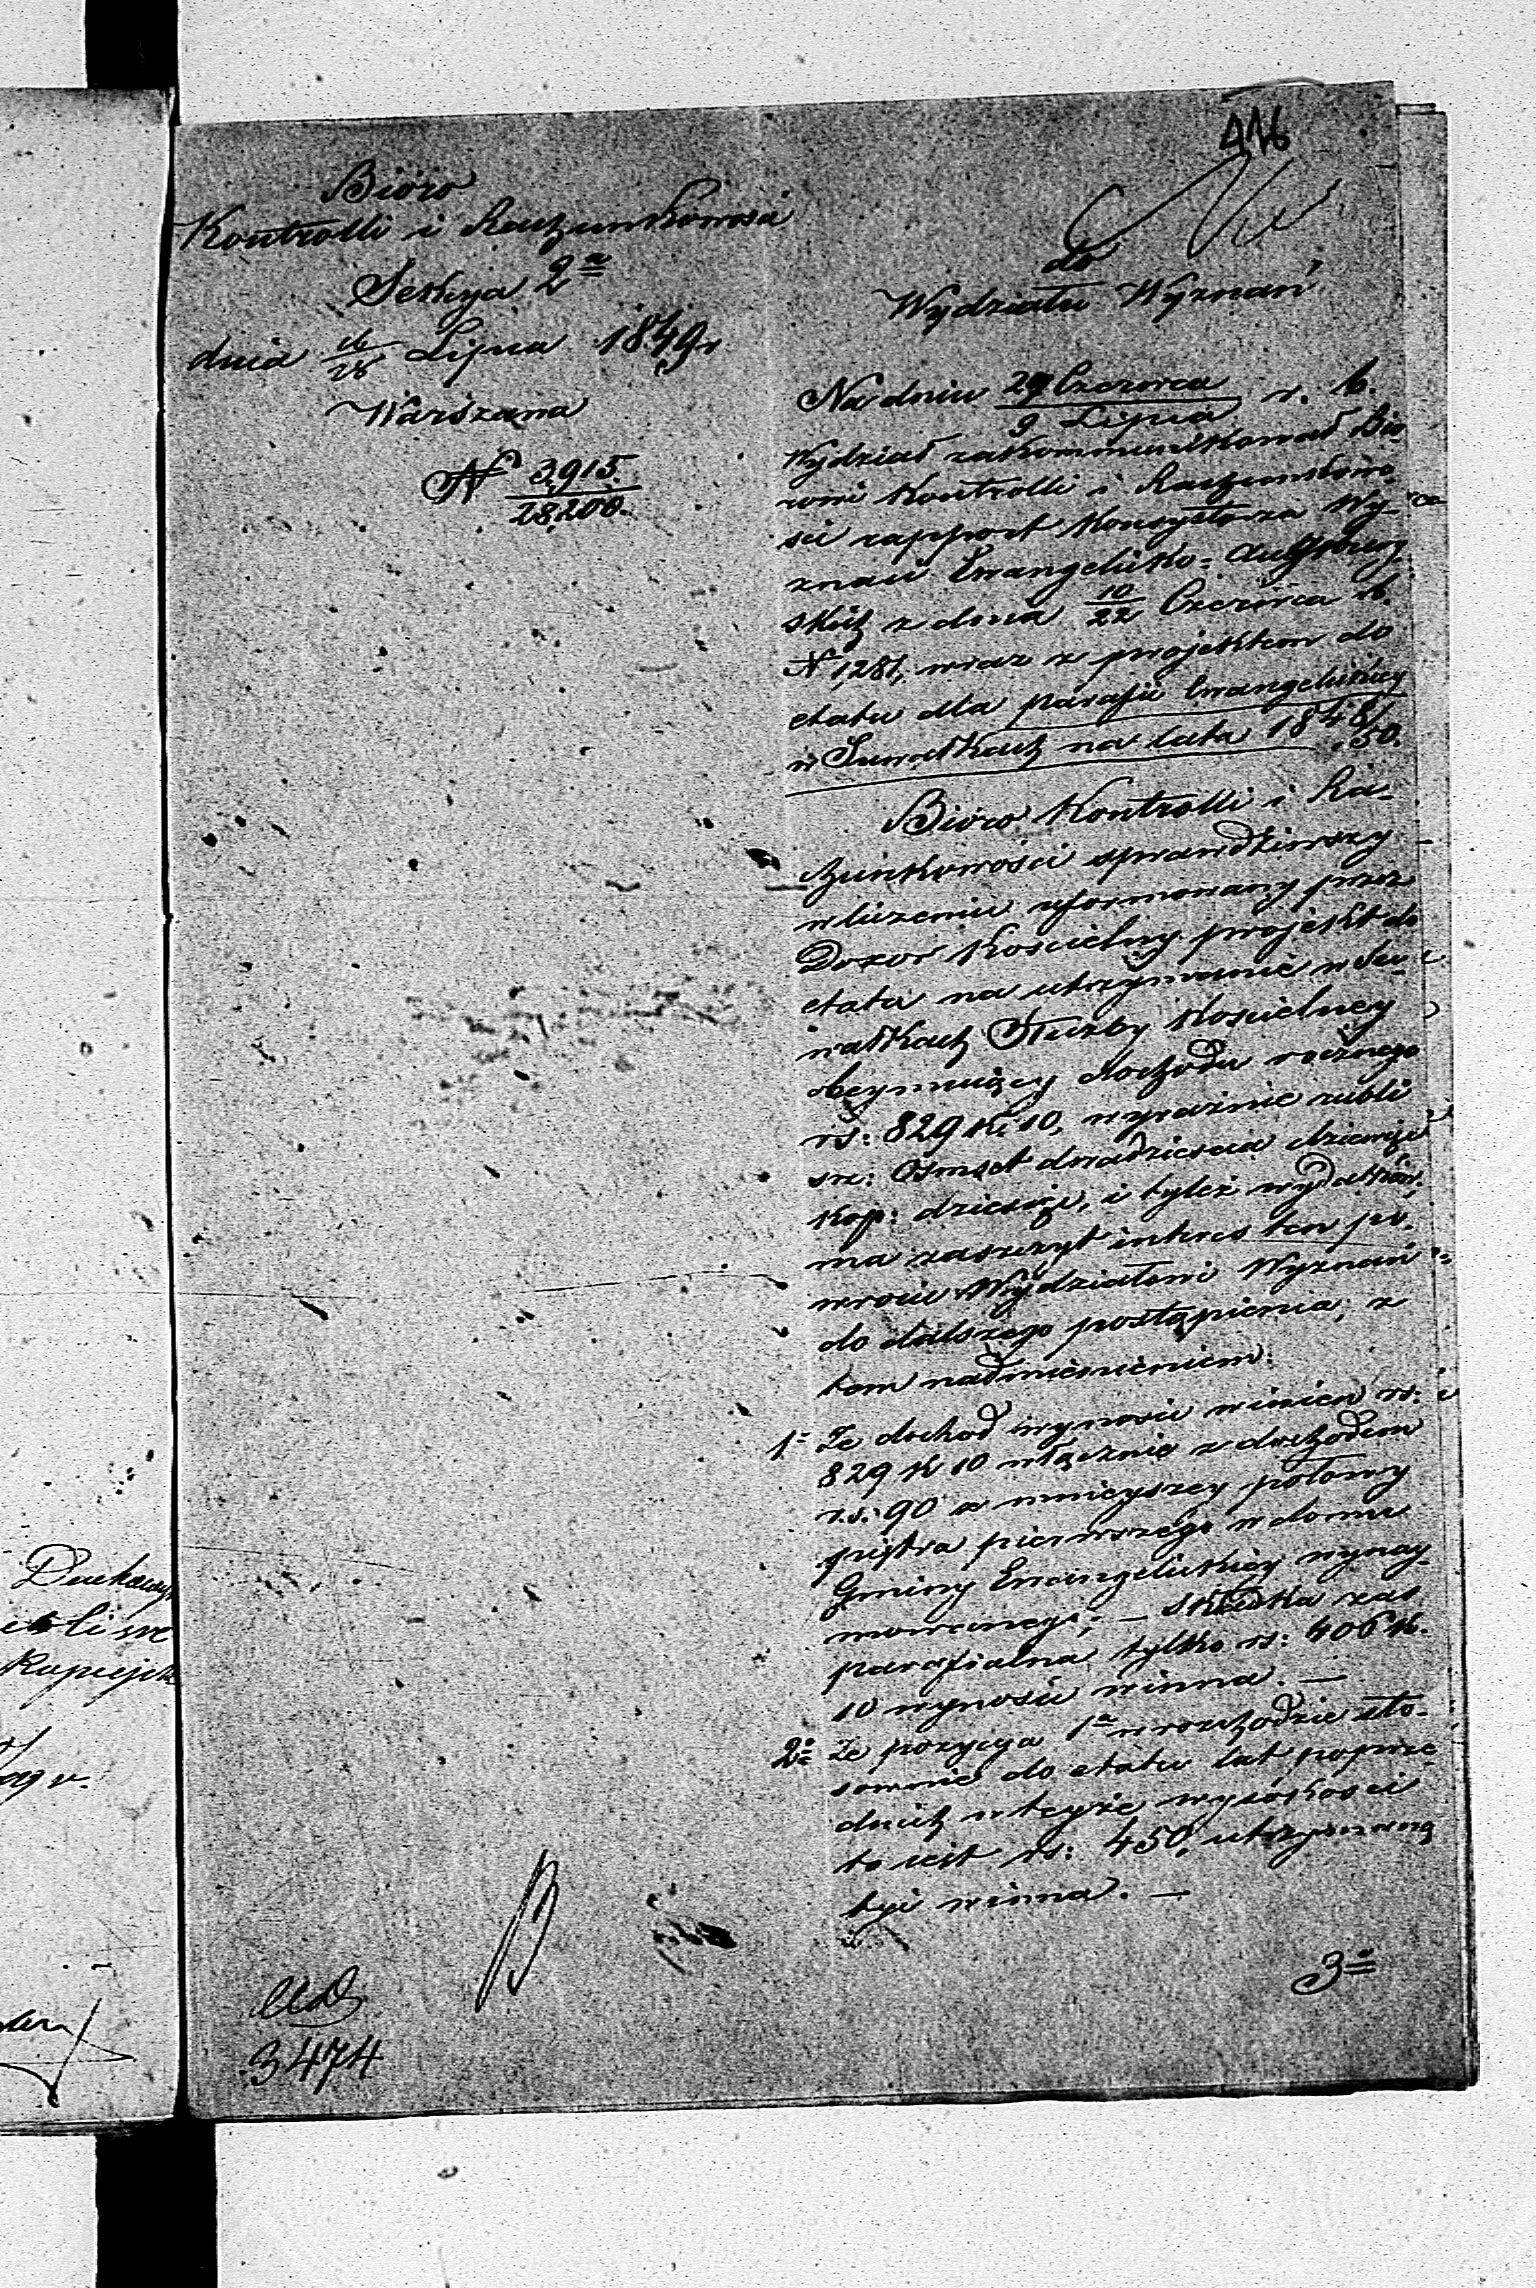 416
Bióro
Kontrolli i Rachunkowości
Sekcya 2ª
dnia 16/28 Lipca 1849 r
Warszawa
N 3,915./28,200.
do
Wydziału Wyznań
Na dniu 27 Czerwca/9 Lipca r. b.
Wydział zakommunikował Bió-
rowi Kontrolli i Rachunkowo-
ści rapport Konsystorza Wy-
znań Ewangelicko-Augsburg-
skich z dnia 10/22 Czerwca b.
N 1,281, wraz z projektem do
etatu dla parafii Ewangelickiey
w Suwałkach na lata 1848/50.
Bióro Kontrolli i Ra-
chunkowości sprawdziwszy
w liczeniu uformowany przez
Dozór Kościelny projekt do
etatu na utrzymanie w Su-
wałkach Służby Kościelney
obeymuiący dochodu rocznego
rs: 829 k. 10, wyraźnie rubli
sr: Ośmset dwadzieścia dziewięć
kop: dziesięć, i tyleż wydatków,
ma zaszczyt interes ten po-
wrócić Wydziałowi Wyznań
do dalszego postąpienia, z
tem nadmienieniem:
1º Że dochód wynosić winien rs:
829 k 10 włącznie z dochodem
r.s. 90 z mnieyszey połowy
piętra pierwszego w domu
Gminy Ewangelickiey wynay-
mowanego; — składka zaś
parafialna tylko rs: 406 k.
10 wynosić winna. —
2º Że pozycya 1ª w rozchodzie sto-
sownie do etatu lat poprze-
dnich w teyże wysokości
to iest rs: 450, utrzymaną
być winna. —
3º
3474
Kopiejek